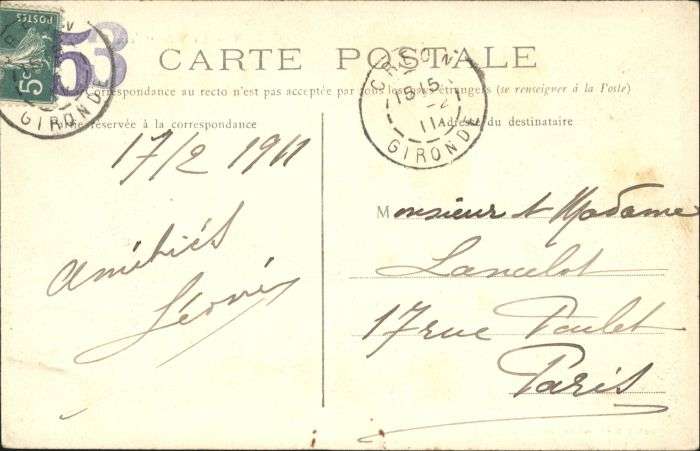 POSTES
5c
53
CARTE POSTALE
correspondance au recto n'est pas acceptée par tous les pays étrangers (se renseigner à la Poste)
CREON
18 15
11
GIRONDE
GIRONDE
réservée à la correspondance
Adresse du destinataire
17/2 1911
Amitiés
Monsieur et Madame
Lancelot
17 rue Paulet
Paris